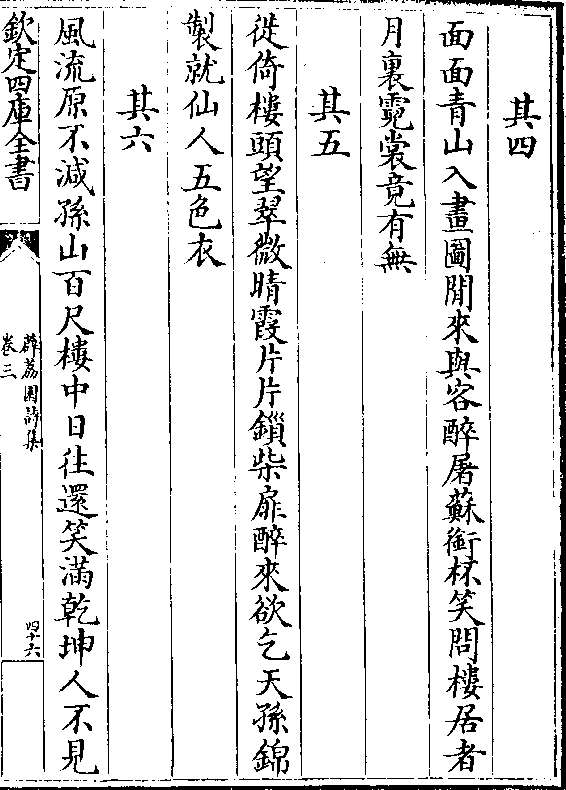 其四
面面青山入畫圖閒來與客醉屠蘇銜杯笑問樓居者
月裏霓裳竟有無
其五
徙倚樓頭望翠微晴霞片片鎻柴扉醉來欲乞天孫錦
製就仙人五色衣
其六
風流原不减孫山百尺樓中日往還笑滿乾坤人不見
欽定四庫全書
薜荔園詩集
卷三
四十六